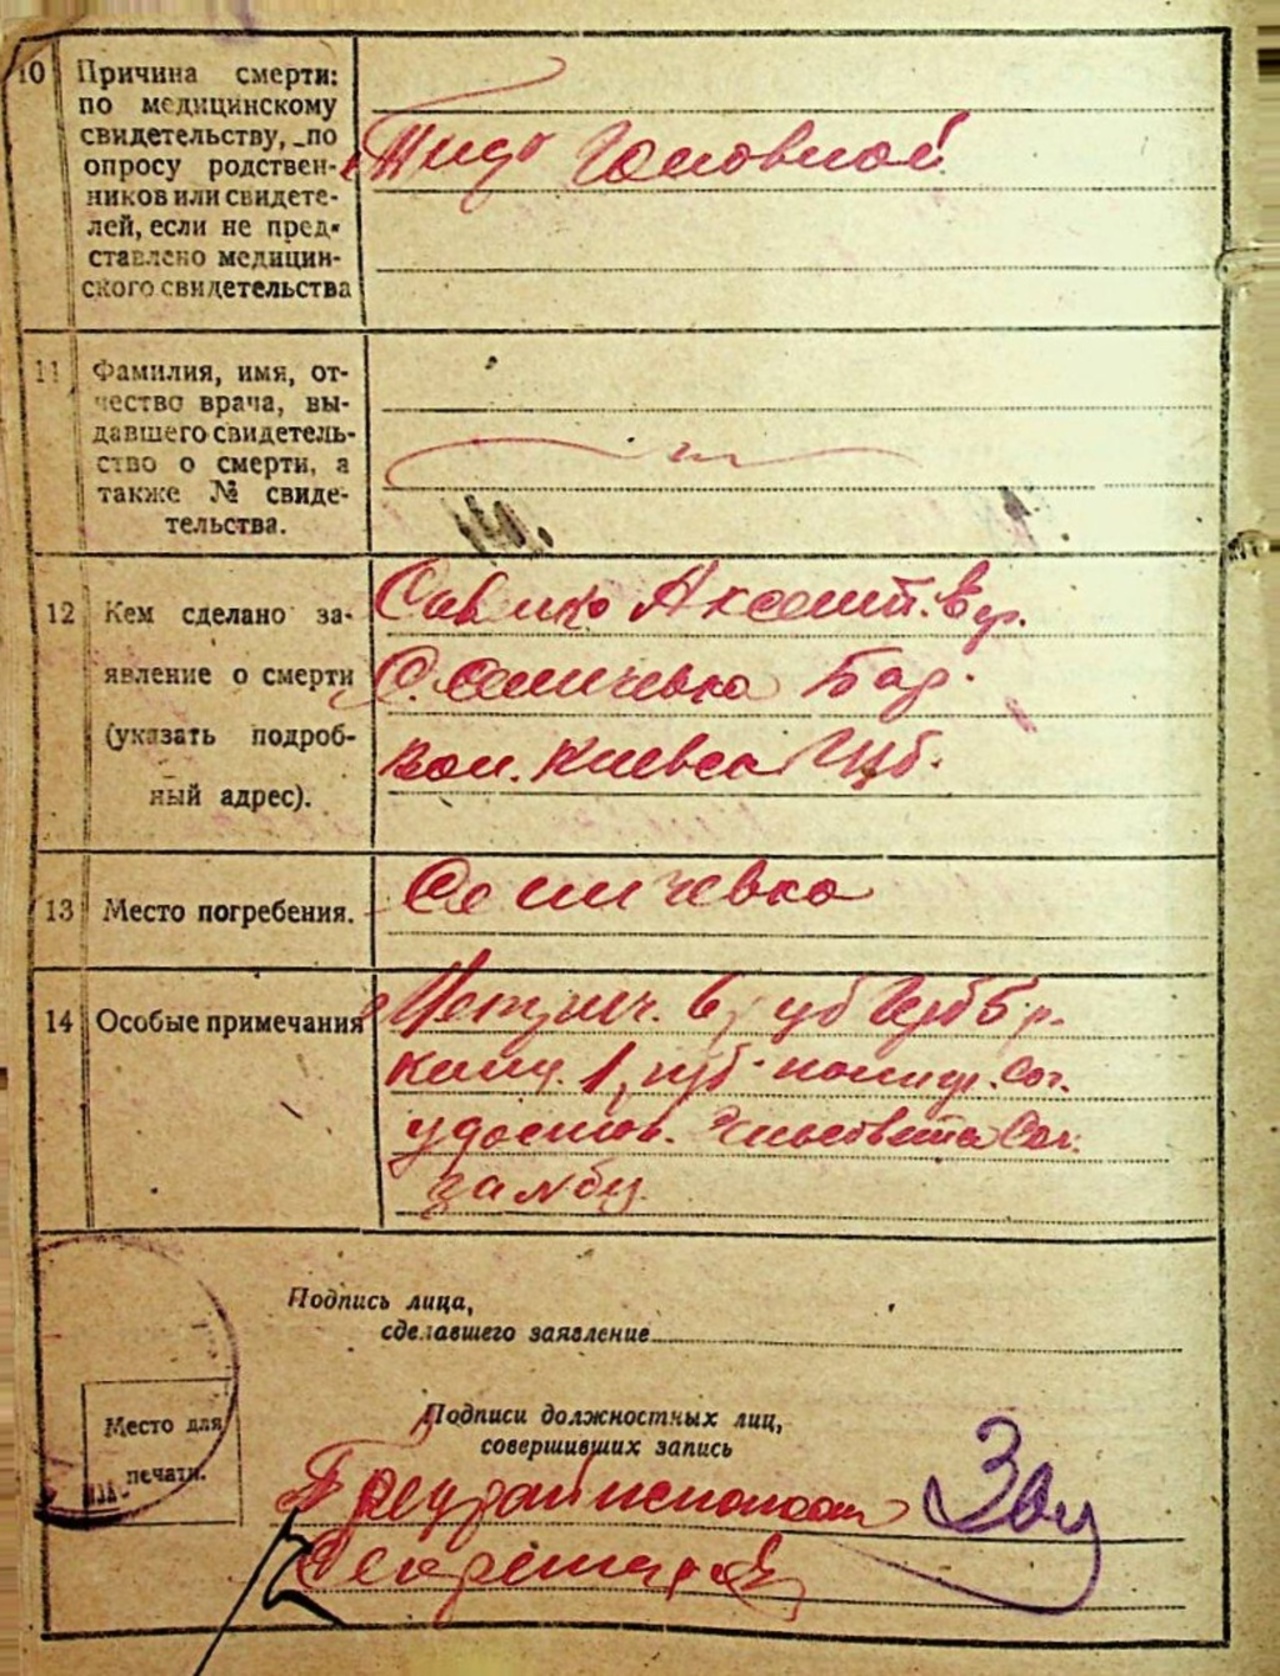 10 Причина смерти:
по медицинскому
свидетельству, по
опросу родствен-
ников или свидете-
лей, если не пред-
ставлено медицин-
ского свидетельства
Тифо Головной
11 Фамилия, имя, от-
чество врача, вы-
давшего свидетель-
ство о смерти, а
также № свиде-
тельства.
12 Кем сделано за-
явление о смерти
(указать подроб-
ный адрес).
Савлко Аксент.
С. Сеничевка Бар.
вол. Киевск Губ.
13 Место погребения.
Сеничевка
14 Особые примечания
Метрич.
1
удостов.
Подпись лица,
сделавшего заявление
Место для
печати.
Подписи должностных лиц,
совершивших запись
Предрайисполком
Секретарь